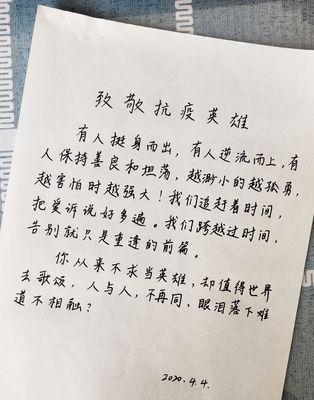 致敬抗疫英雄
有人挺身而出，有人逆流而上，有
人保持善良和坦荡，越渺小的越孤勇，
越害怕时越强大！我们追赶着时间，
把爱诉说好多遍。我们跨越过时间，
告别就只是重逢的前篇。
你从来不求当英雄，却值得世界
去歌颂，人与人，不再同、眼泪落下难
道不相融？
2020.4.4.